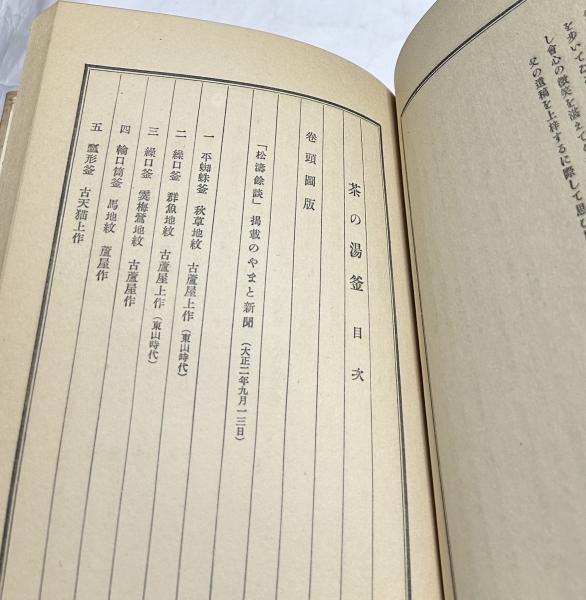 を歩いて
し會心の微笑を
父の遺稿を上梓するに際して
茶の湯釜 目次
卷頭圖版
「松濤餘談」揭載のやまと新聞 (大正二年九月一三日)
一 平蜘蛛釜 秋草地紋 古蘆屋上作
二 繰口釜 群魚地紋 古蘆屋上作 (東山時代)
三 繰口釜 雲梅鶯地紋 古蘆屋上作 (東山時代)
四 輪口筒釜 馬地紋 蘆屋作
五 瓢形釜 古天猫上作